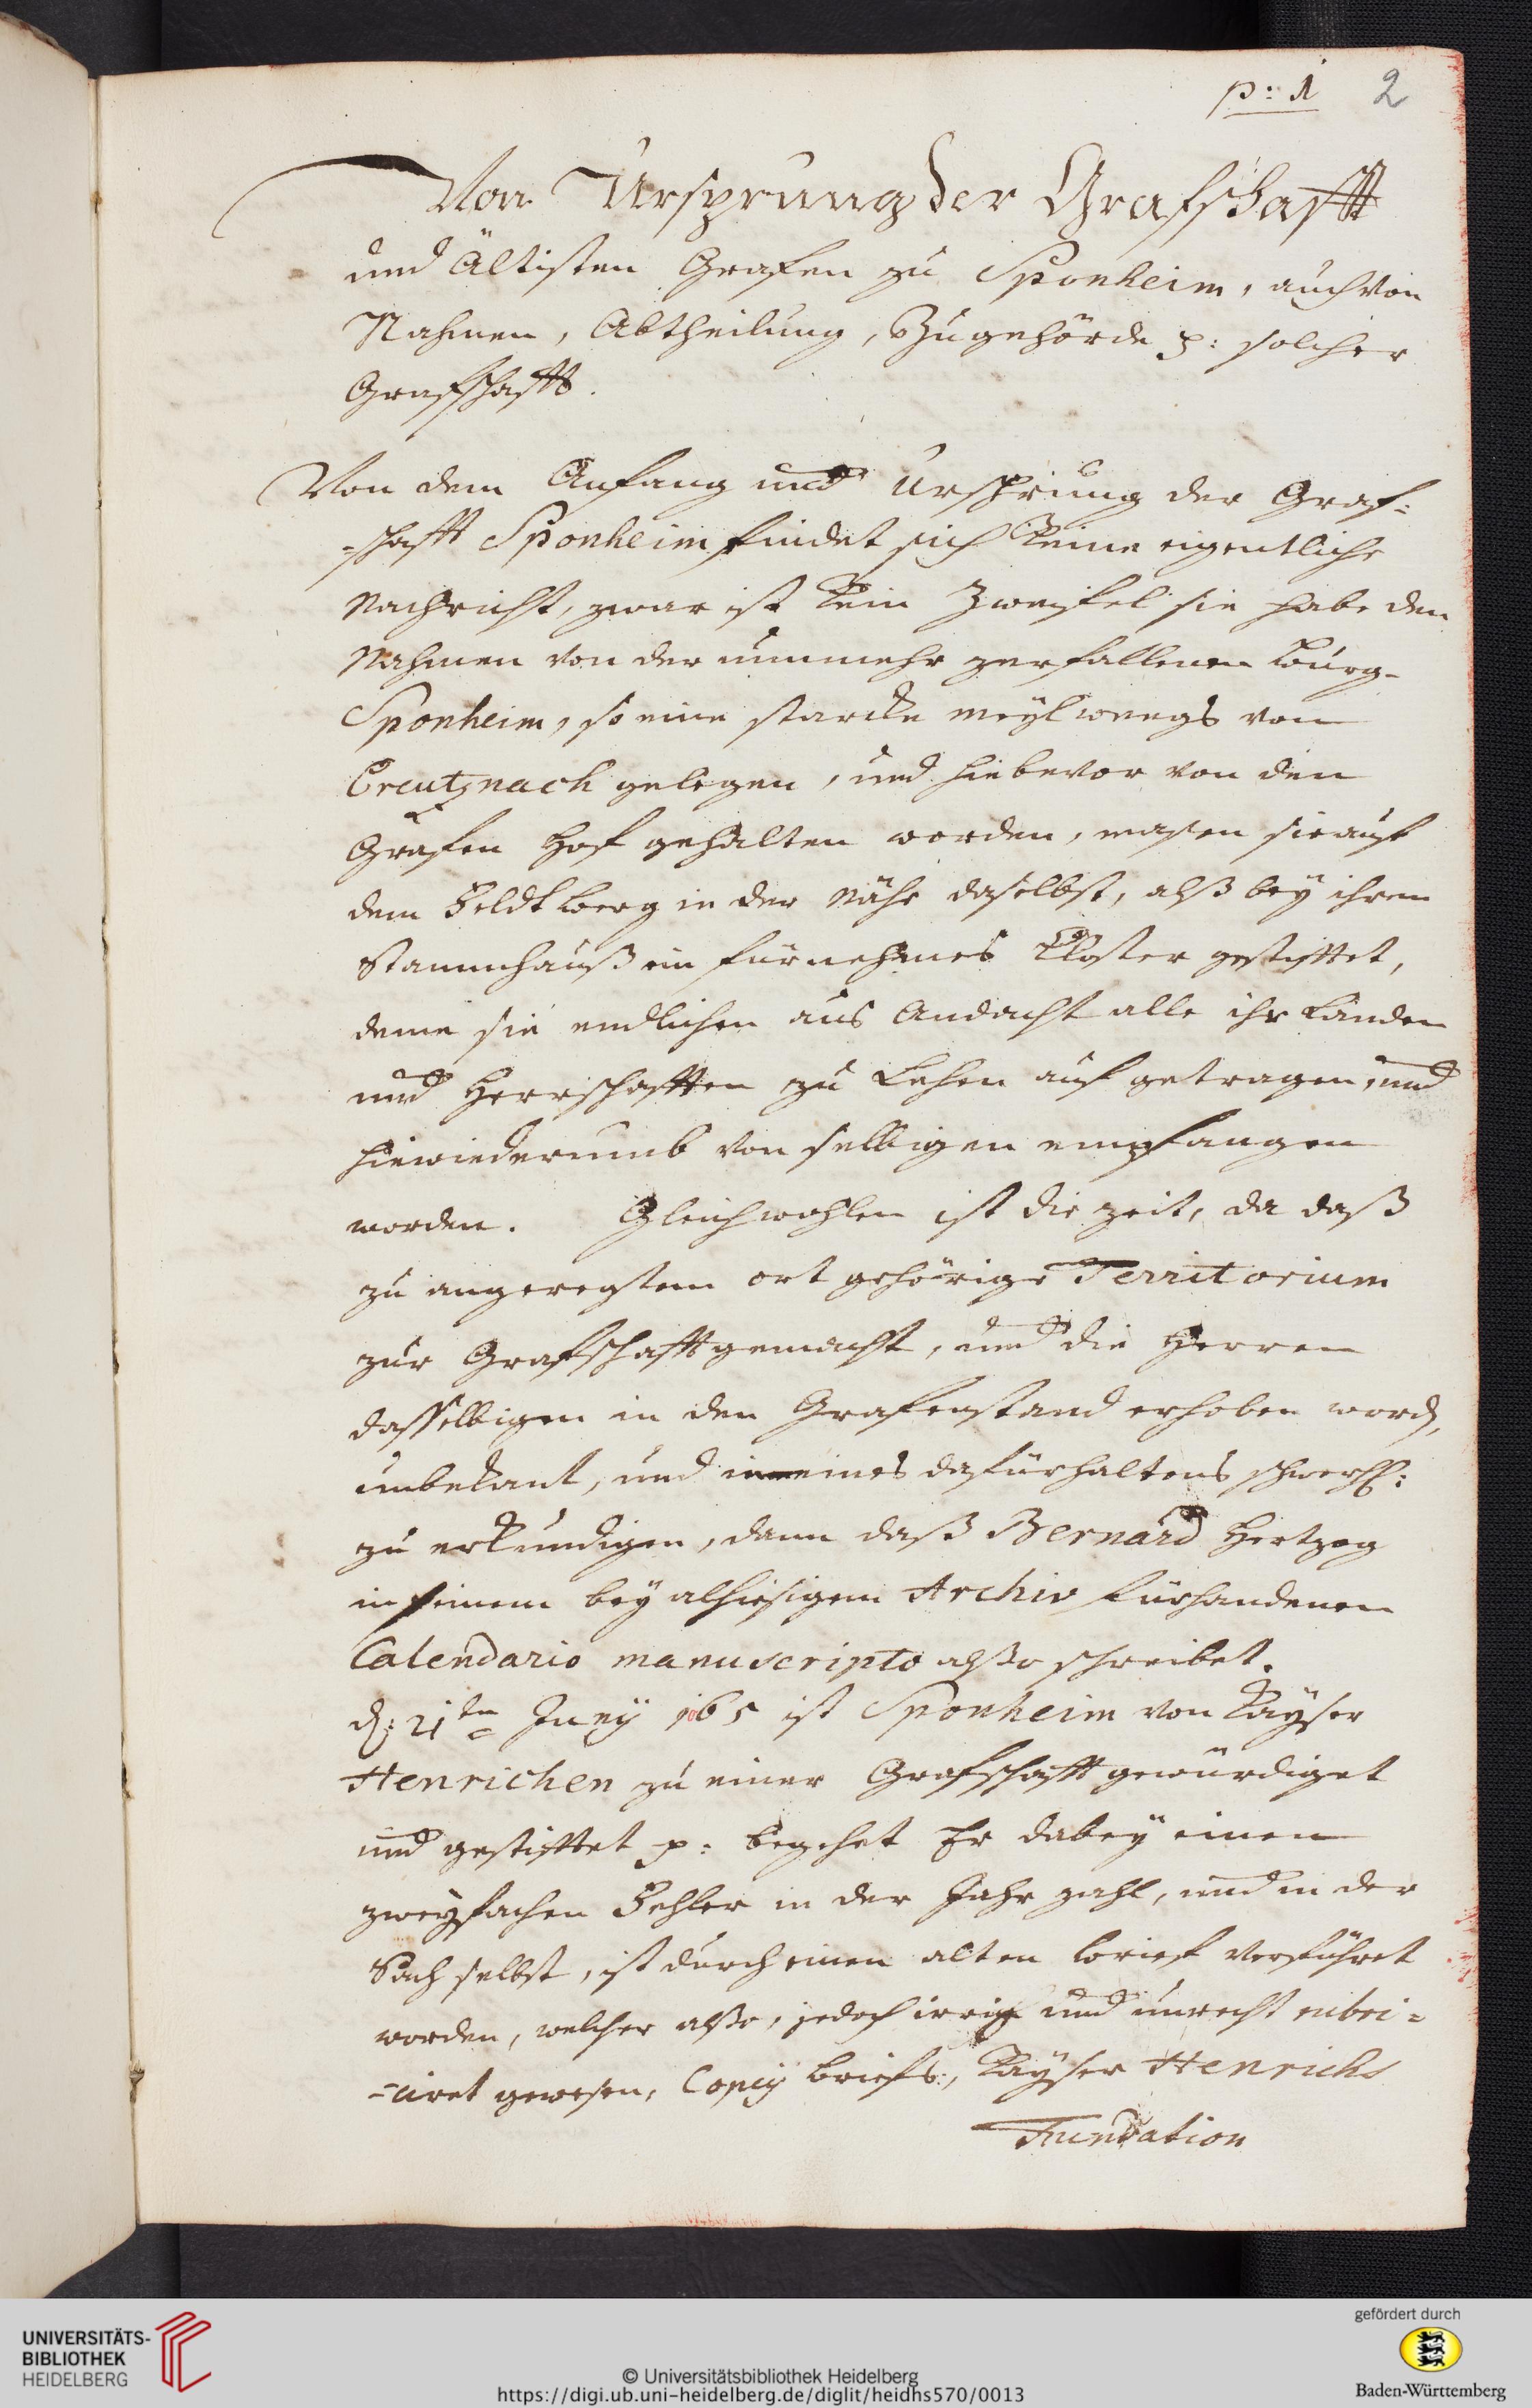 p: 1 2
Von Ursprung der Grafschafft
und ältisten Grafen zu Sponheim, auch von
Nahmen, Abtheilung, Zugehörde p: solcher
Graffschafft.
Von dem Anfang und Ursprung der Graf=
=schafft Sponheim findet sich keine eigentliche
Nachricht, zwar ist kein Zweifel sie habe den
Nahmen von der nunmehr zerfallenen Burg-
Sponheim, so eine starcke meyl weegs von
Creutznach gelegen, und hiebevor von den
Grafen Hof gehalten worden, masen sie auf
dem Feldtberg in der Nähe daselbst, alß bey ihrem
Stammhauß ein fürnehmes Closter gestifftet,
deme sie endlichen aus Andacht alle ihr Landen
und Herrschafften zu Lehen auf getragen, und
hinwiederumb von selbigen empfangen
worden. Gleichwohlen ist die zeit, da daß
zu angeregtem ort gehörige Territorium
zur Grafschafft gemacht, und die Herren
dasselbigen in den Grafenstand erhoben word,
unbekant, und meines dafürhaltens schwerl:
zu erkundigen, dann daß Bernard Hertzog
in seinem bey alhiesigem Archiv fürhandenen
Calendario manuscripto also schreibet.
d: 21ten Juny 1065 ist Sponheim von Kayser
Henrichen zu einer Grafschafft gewürdiget
und gestifftet p: begehet Er dabey einen
zweyfachen Fehler in der Jahr zahl, und in der
Sach selbst, ist durch einen alten brief verführet
worden, welcher also, jedoch irrig und unrecht rubri=
=ciret gewesen, Copey briefs, Kayser Henrichs
Fundation
UNIVERSITÄTS-
BIBLIOTHEK
HEIDELBERG
© Universitätsbibliothek Heidelberg
https://digi.ub.uni-heidelberg.de/diglit/heidhs570/0013
gefördert durch
Baden-Württemberg